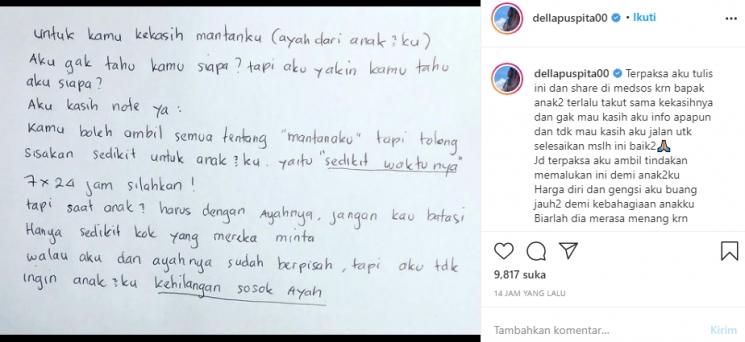 untuk kamu kekasih mantanku (ayah dari anak²ku)
Aku gak tahu kamu siapa? tapi aku yakin kamu tahu
aku siapa?
Aku kasih note ya :
Kamu boleh ambil semua tentang "mantanaku" tapi tolong
sisakan sedikit untuk anak²ku. yaitu "sedikit waktunya"
7x24 jam silahkan!
tapi saat anak² harus dengan Ayahnya, jangan kau batasi
Hanya sedikit kok yang mereka minta
walau aku dan ayahnya sudah berpisah, tapi aku tdk
ingin anak²ku kehilangan sosok Ayah
dellapuspita00 • Ikuti
dellapuspita00 Terpaksa aku tulis
ini dan share di medsos krn bapak
anak2 terlalu takut sama kekasihnya
dan gak mau kasih aku info apapun
dan tdk mau kasih aku jalan utk
selesaikan mslh ini baik2🙏🏽
Jd terpaksa aku ambil tindakan
memalukan ini demi anak2ku
Harga diri dan gengsi aku buang
jauh2 demi kebahagiaan anakku
Biarlah dia merasa menang krn
9,817 suka
14 JAM YANG LALU
Tambahkan komentar...
Kirim